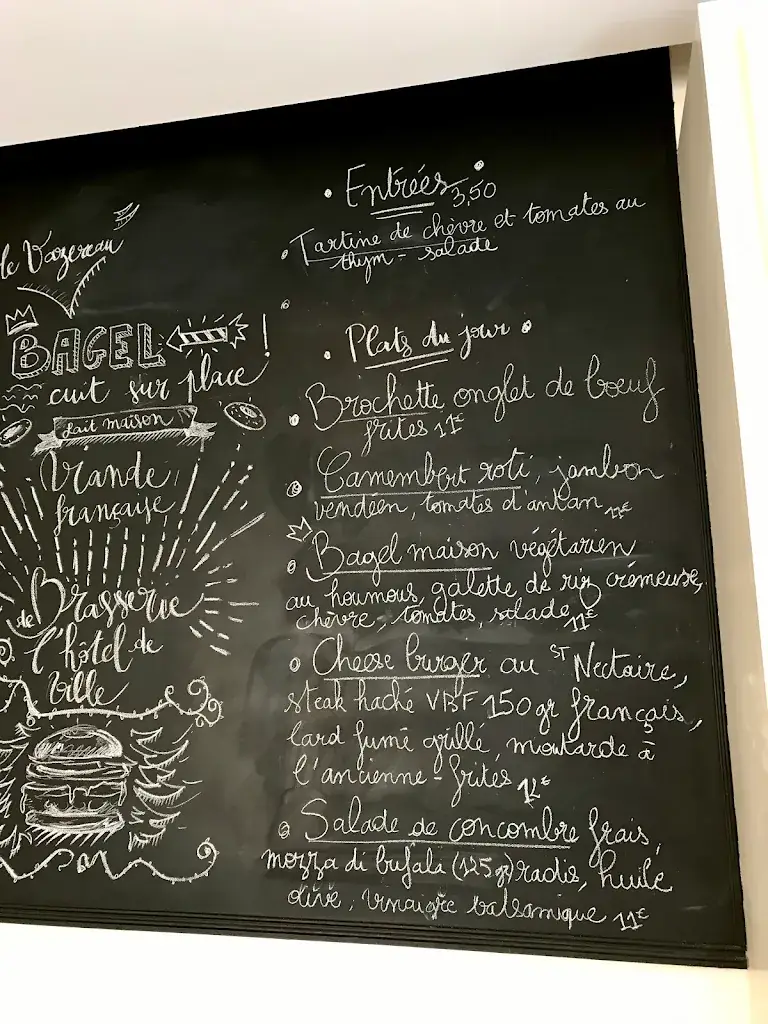 le Vazereau
BAGEL !
cuit sur place
fait maison
Viande
française
de Brasserie
l'hôtel de
ville
Entrées 3,50
Tartine de chèvre et tomates au
thym - salade
Plats du jour
Brochette onglet de boeuf
frites 11€
Camembert roti, jambon
vendéen, tomates d'antan 11€
Bagel maison végétarien
au houmous, galette de riz crémeuse,
chèvre, tomates, salade 11€
Cheese burger au ST Nectaire,
steak haché VBF 150gr français,
lard fumé grillé, moutarde à
l'ancienne - frites 12€
Salade de concombre frais,
mozza di bufala (125 gr) radis, huile
olive, vinaigre balsamique 11€